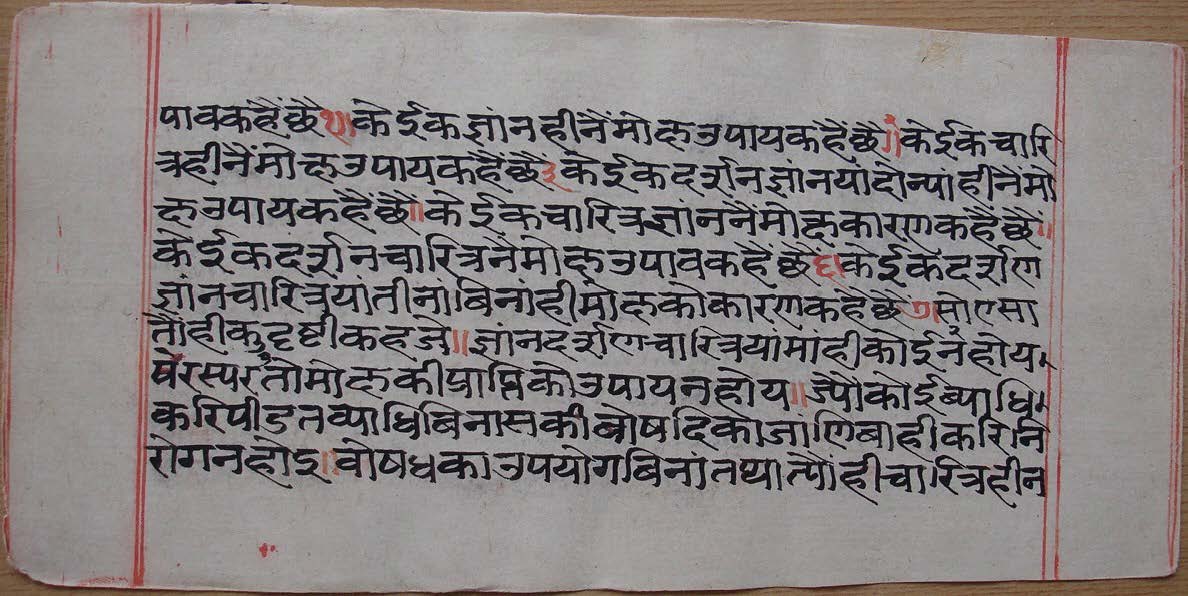 पावकहैंछै१।केईकज्ञांनहीनैंमोक्षउपायकहैंछै॥केईकचारि
त्रहीनैंमोक्षउपायकहैंछै३केईकदर्शनज्ञांनयांदोन्यांहीनैंमो
क्षउपायकहैंछै॥केईकचारित्रज्ञांननैंमोक्षकारणकहैंछै॥
केईकदर्शनचारित्रनैंमोक्षउपावकहैंछै६।केईकदर्शण
ज्ञांनचारित्रयांतीनांबिनांहीमोक्षकोकारणकहैंछै७सोएसा
तौंहीकुदृष्टीकहजे॥ज्ञांनदर्शणचारित्रयांमांहीकोईनहोय
परस्परतौमोक्षकीप्राप्तिकोउपायनहोय॥ज्यौकोईब्याधि
करिपीडतव्याधिबिनासकीवोषदिकोजाणिबाहीकरिनि
रोगनहोइ।वोषधकाउपयोगबिनांतथात्यौंहीचारित्रहीन